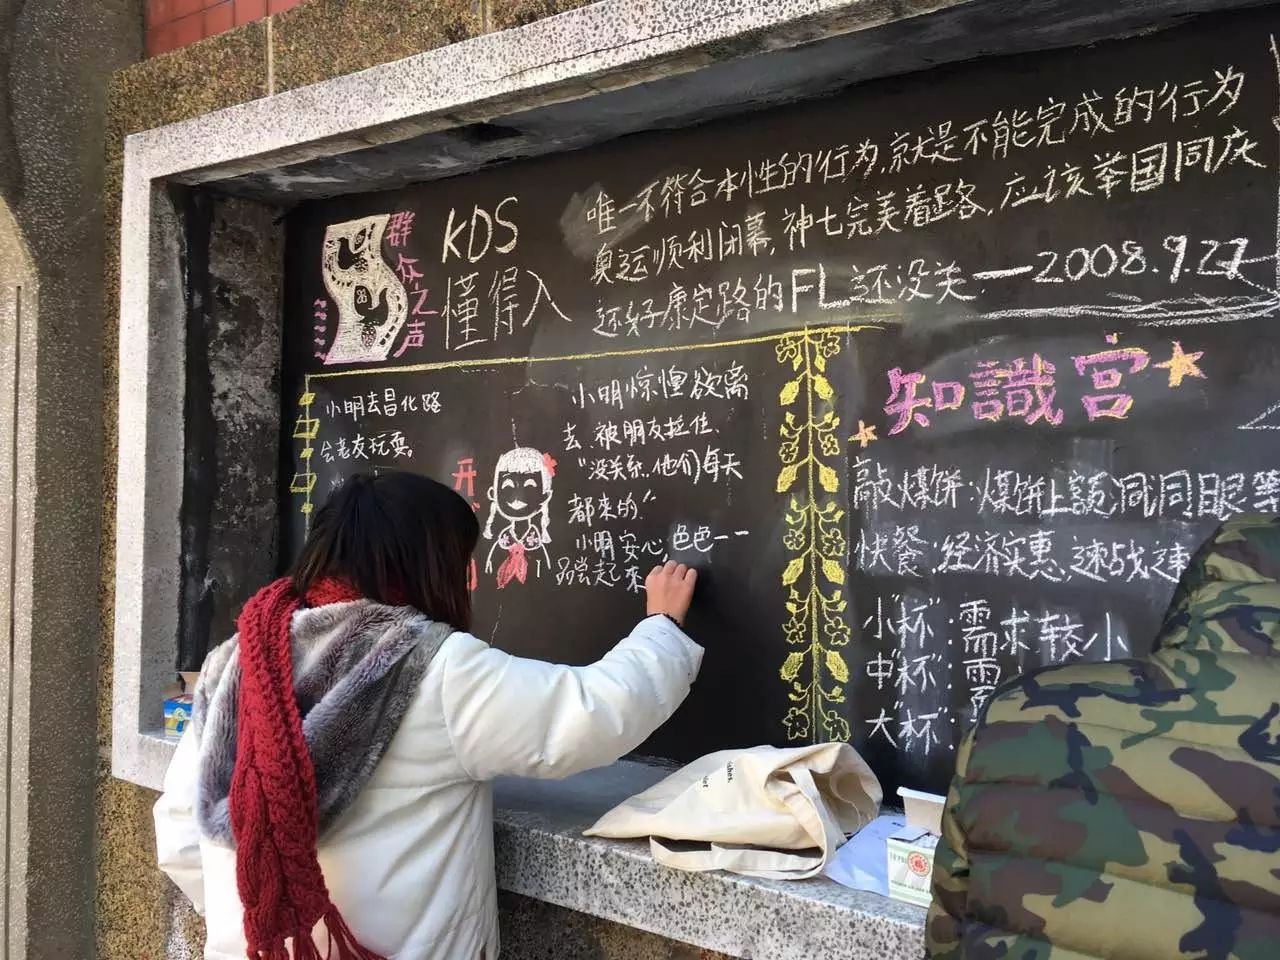 群众之声
KDS
懂得入
唯一不符合本性的行为,就是不能完成的行为
奥运顺利闭幕,神七完美着路,应该举国同庆
还好康定路的FL还没关.——2008.9.27
小明去昌化路
会老友玩耍。
开
小明惊惶欲离
去 被朋友拦住.
"没关系.他们每天
都来的."
小明安心,色色一一
蹈尝起来
知識宮
敲煤饼:煤饼上頭洞洞眼等
快餐:经济实惠,速战速
小"杯":需求较小
中"杯":需
大"杯":